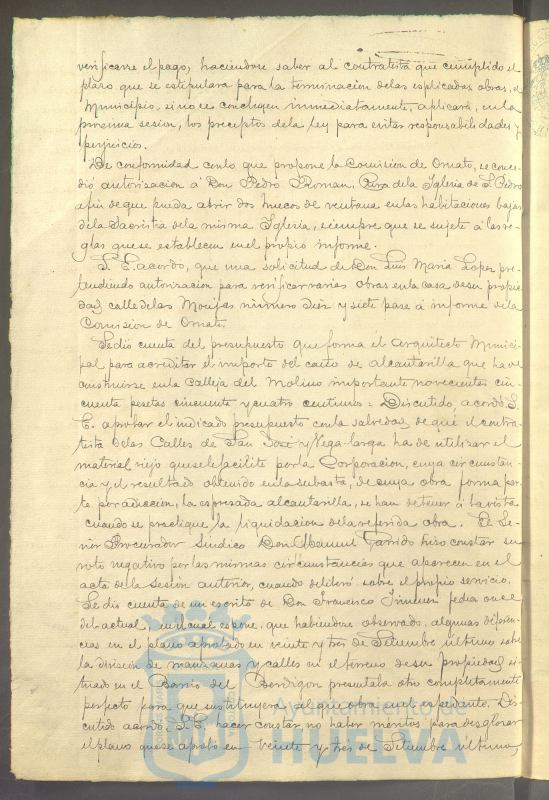 verificarse el pago, haciendose saber al contratista que cumplido el
plazo que se estipulara para la terminacion de las esplicadas obras, el
Municipio, si no se concluyen inmediatamente, aplicará, en la
proxima sesion, los preceptos de la ley para evitar responsabilidades y
perjuicios.
De conformidad con lo que propone la Comision de Ornato, se conce-
dió autorizacion á Don Pedro Roman, Cura de la Iglesia de S. Pedro
afin de que pueda abrir dos huecos de ventana en las habitaciones bajas
de la Sacristia de la misma Iglesia, siempre que se sujete á las re-
glas que se establecen en el propio informe.
S. E. acordo, que una solicitud de Don Luis Maria Lopez, pre-
tendiendo autorizacion para verificar varias obras en la casa de su propie-
dad calle de las Monjas número diez y siete pase á informe de la
Comision de Ornato.
Se dió cuenta del presupuesto que forma el Arquitecto Munici-
pal para acreditar el importe del caño de alcantarilla que ha de
construirse en la Calleja del Molino importante novecientas cin-
cuenta pesetas cincuenta y cuatro centimos = Discutido, acordó S.
E. aprobar el indicado presupuesto con la salvedad, de que el contra-
tista de las Calles de San José y Vega-larga ha de utilizar el
material viejo que se le facilite por la Corporacion, cuya circunstan-
cia y el resultado obtenido en la subasta, de cuya obra forma par-
te por adiccion, la espresada alcantarilla, se han de tener á la vista
cuando se practique la liquidacion de la referida obra. El Se-
ñor Procurador Sindico Don Manuel Garrido hizo constar su
voto negativo por las mismas circunstancias que aparecen en el
acta de la sesion anterior, cuando deliberó sobre el propio servicio.
Se dió cuenta de un escrito de Don Francisco Jimenez fecha once
del actual, en el cual espone, que habiendose observado algunas diferen-
cias en el plano aprobado en veinte y tres de Setiembre último sobre
la division de manzanas y calles en el terreno de su propiedad si-
tuado en el Barrio del Berdigon presentaba otro completamente
perfecto para que sustituyera al que obra en el espediente. Dis-
cutido acordó S. E. hacer constar no haber meritos para desglosar
el plano que se aprobó en veinte y tres de Setiembre último,
Ayuntamiento de
HUELVA